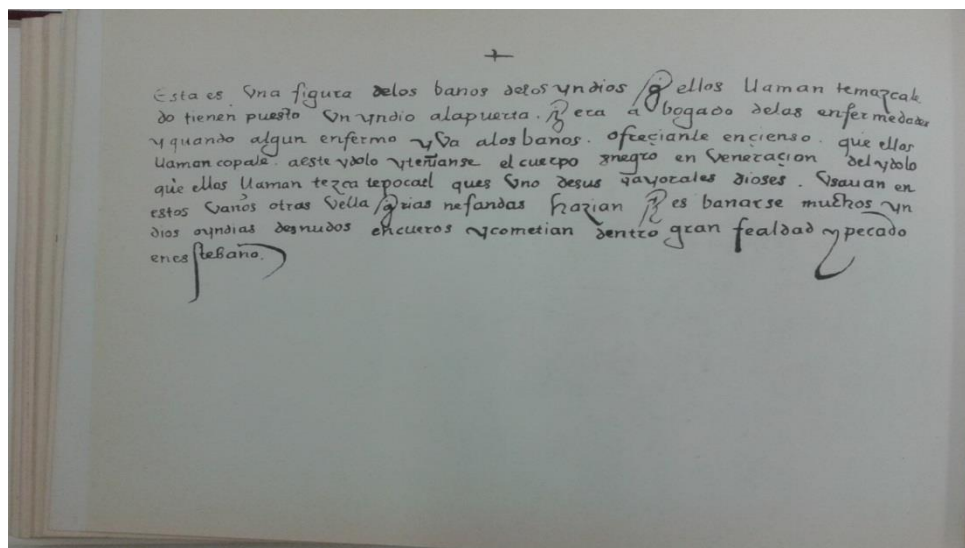 Esta es. Vna figura delos banos delos yndios q̃ ellos llaman temazcale
do tienen puesto Vn yndio alapuerta. q̃ era abogado delas enfermedades
y quando algun enfermo yVa alos banos. ofreçianle ençienso. que ellos
llaman copale. aeste ydolo yteñianse el cuerpo negro en Veneraçion del ydolo
que ellos llaman tezcatepocatl ques Vno desus mayorales dioses. Vsauan en
estos Vaños otras Vellaq̃rias nefandas hazian q̃ es banarse muchos yn
dios oyndias desnudos encueros ycometian dentro gran fealdad ypecado
enestebano.